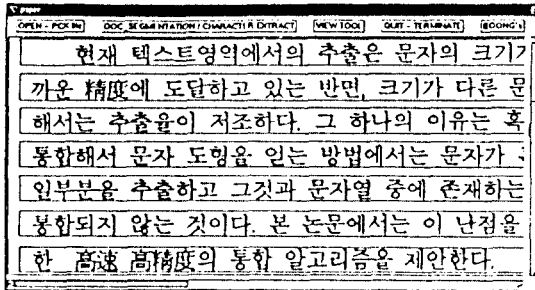 paper
OPEN - PCX IMG DOC_SEGMENTATION / CHARACTER EXTRACT VIEW TOOL QUIT - TERMINATE
현재 텍스트영역에서의 추출은 문자의 크기가
까운 精度에 도달하고 있는 반면, 크기가 다른 문
해서는 추출율이 저조하다. 그 하나의 이유는 혹
통합해서 문자 도형을 얻는 방법에서는 문자가
일부분을 추출하고 그것과 문자열 중에 존재하는
통합되지 않는 것이다. 본 논문에서는 이 난점을
한 高速 高精度의 통합 알고리즘을 제안한다.